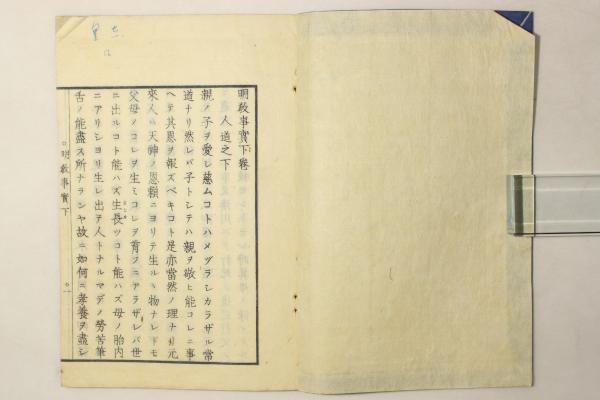 明教事實下卷
人道之下
親ノ子ヲ愛シ慈ムコトハメヅラシカラザル常
道ナリ然レバ子トシテハ親ヲ敬ヒ能コレニ事
ヘテ其恩ヲ報ズベキコト是亦當然ノ理ナリ元
來人ハ天神ノ恩賴ニヨリテ生ルヽ物ナレドモ
父母ノコレヲ生ミコレヲ育フニアラザレバ世
ニ出ルコト能ハズ生長ツコト能ハズ母ノ胎內
ニアリシヨリ生レ出テ人トナルマデノ勞苦筆
舌ノ能盡ス所ナランヤ故ニ如何ニ孝養ヲ盡シ
明教事實下
一